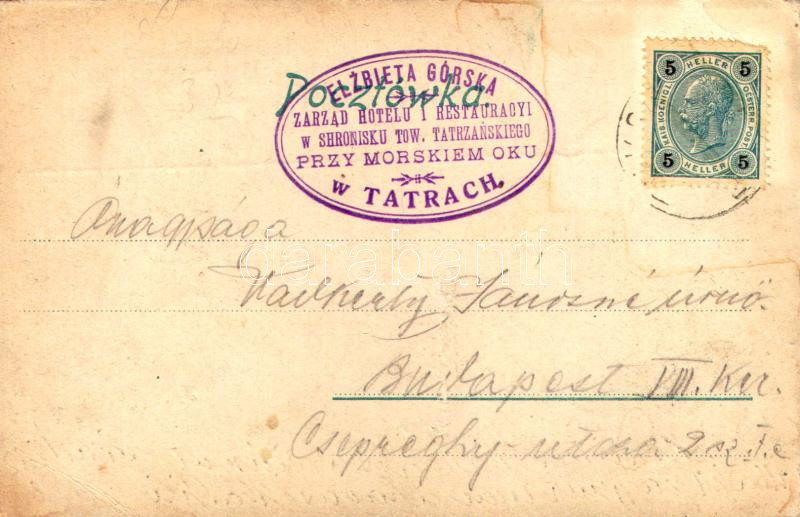 Pocztówka.
ELŻBIETA GÓRSKA
ZARZĄD HOTELU I RESTAURACYI
W SHRONISKU TOW. TATRZAŃSKIEGO
PRZY MORSKIEM OKU
W TATRACH.
5 HELLER 5
KAIS. KOENIGL. OESTERR. POST.
5 HELLER 5
Őnagysága
darabanth
Vadkerty Jánosné úrnő.
Budapest VIII. Ker.
Csepreghy-utcza 2 sz I. e